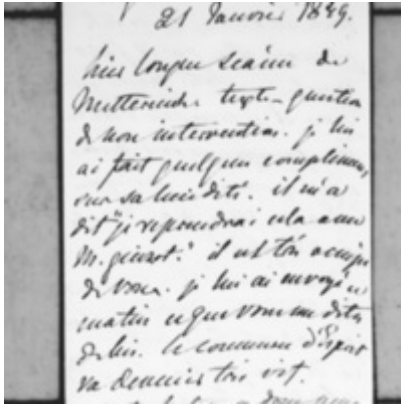 21 Janvier 1849.
hier longue séance de
Metternich. texte - question
de non intervention. je lui
ai fait quelques complimens
sur sa lucidité. il m'a
dit "je repondrai cela avec
M. guizot." il est très occupé
de vous. je lui ai envoyé ce
matin ce que vous me dites
de lui. le commun d'Esprit
va devenir très vif.